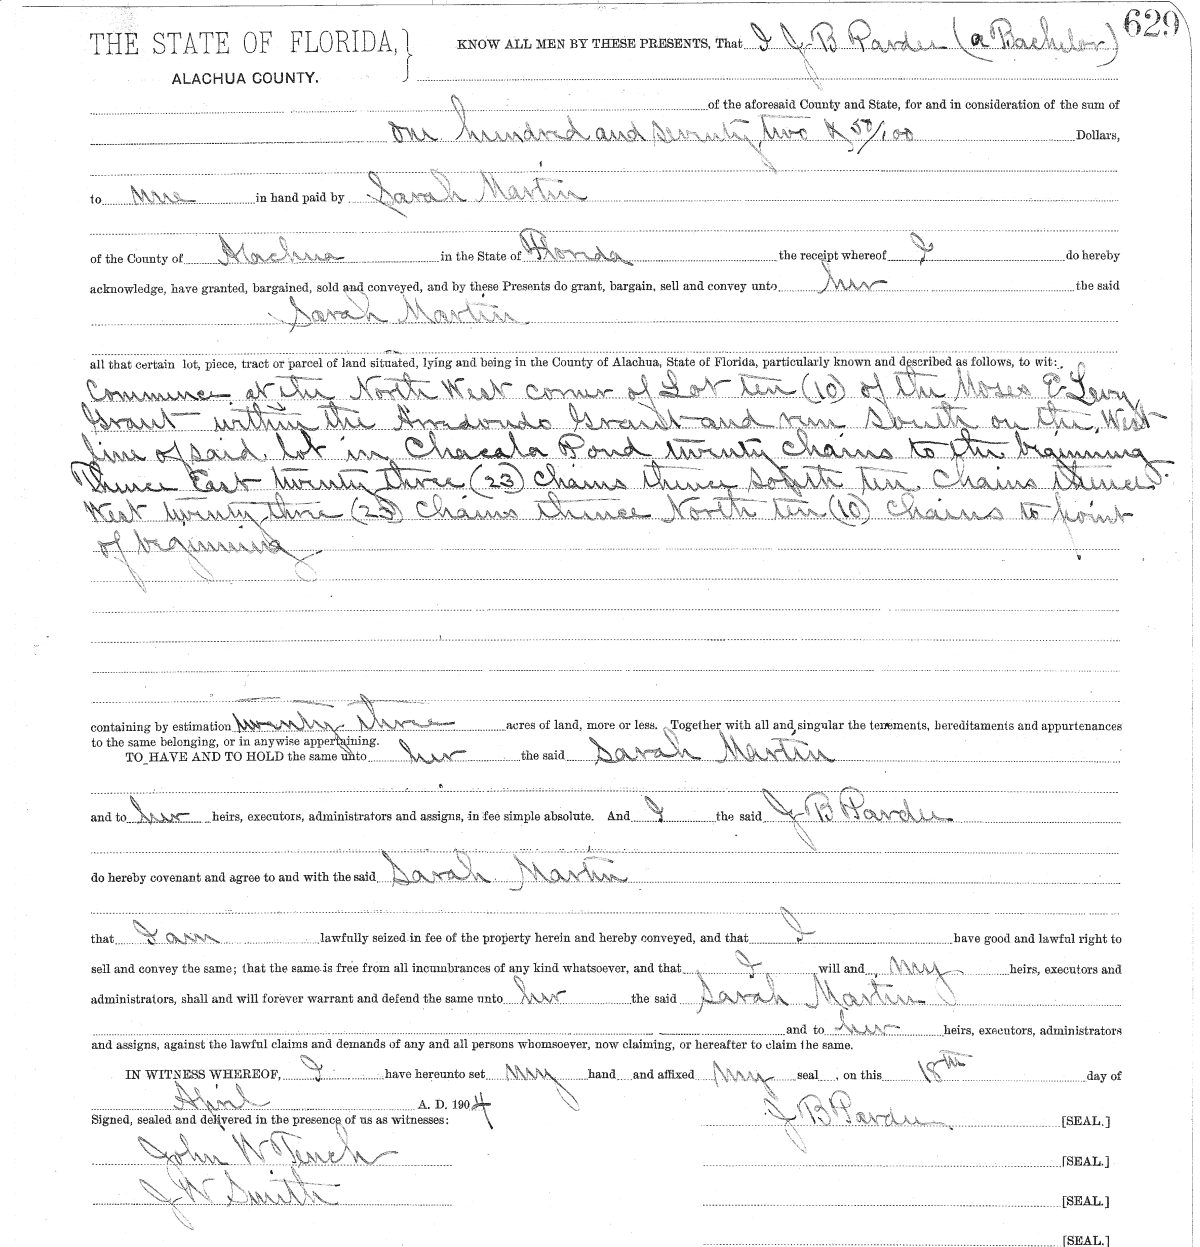 629
THE STATE OF FLORIDA, KNOW ALL MEN BY THESE PRESENTS, That I J B Pardee (a Bachelor)
ALACHUA COUNTY.
of the aforesaid County and State, for and in consideration of the sum of
one hundred and seventy two & 50/100 Dollars,
to me in hand paid by Sarah Martin
of the County of Alachua in the State of Florida the receipt whereof I do hereby
acknowledge, have granted, bargained, sold and conveyed, and by these Presents do grant, bargain, sell and convey unto her the said
Sarah Martin
all that certain lot, piece, tract or parcel of land situated, lying and being in the County of Alachua, State of Florida, particularly known and described as follows, to wit:
Commence at the North West corner of Lot ten (10) of the Moses E Levy
Grant within the Arredondo Grant and run South on the West
line of said lot in Chacala Pond twenty chains to the beginning
Thence East twenty three (23) chains thence South ten chains thence
West twenty three (23) chains thence North ten (10) chains to point
of beginning.
containing by estimation twenty three acres of land, more or less. Together with all and singular the tenements, hereditaments and appurtenances
to the same belonging, or in anywise appertaining.
TO HAVE AND TO HOLD the same unto her the said Sarah Martin
and to her heirs, executors, administrators and assigns, in fee simple absolute. And I the said J B Pardee
do hereby covenant and agree to and with the said Sarah Martin
that I am lawfully seized in fee of the property herein and hereby conveyed, and that I have good and lawful right to
sell and convey the same; that the same is free from all incumbrances of any kind whatsoever, and that I will and my heirs, executors and
administrators, shall and will forever warrant and defend the same unto her the said Sarah Martin
and to her heirs, executors, administrators
and assigns, against the lawful claims and demands of any and all persons whomsoever, now claiming, or hereafter to claim the same.
IN WITNESS WHEREOF, I have hereunto set my hand and affixed my seal, on this 18th day of
April A. D. 1904
Signed, sealed and delivered in the presence of us as witnesses: J B Pardee [SEAL.]
John W Tench [SEAL.]
J W Smith [SEAL.]
[SEAL.]